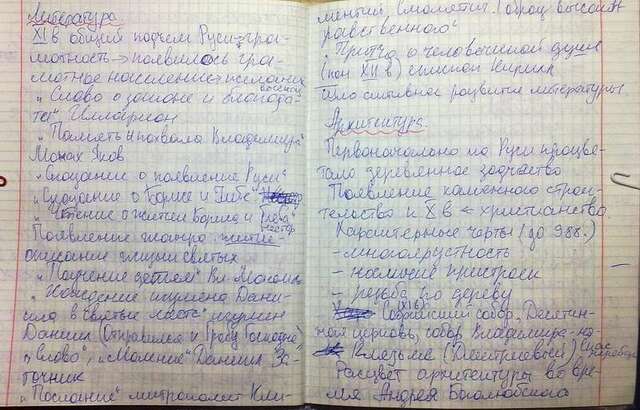 Литература
XI в общий подъем Руси→гра-
мотность→появилось гра-
мотное население→
„Слово о законе и благода-
ти" Илларион
„Память и похвала Владимиру"
Монах Яков
„Сказание о появление Руси"
„Сказание о Борисе и Глебе"
„Чтение о житии Бориса и Глеба" Нестор
Появление жанра житие-
описание жизни святых
„Поучение детям" Вл. Мономах
„Хождение игумена Дани-
ила в святые места" игумен
Даниил (Отправился к Гробу Господне)
„Слово", „Моление" Даниила За-
точник
„Послание" митрополит Кли-
ментий Смолятич (образ высоко
нравственного
„Притча о человеческой душе"
(кон XII в) епископ Кирилл
Шло активное развитие литературы.
Архитектура
Первоначально на Руси процве-
тало деревянное зодчество
Появление каменного строи-
тельство к X в ← христианство.
Характерные черты (до 988г.)
- многоярустность
- наличие пристроек
- резьба по дереву
Софийский собор (XI в), Десятин-
ная церковь, собор Владимире-на-
Клязьме (Дмитриевский)
Расцвет архитектуры во вре-
мя Андрея Боголюбского